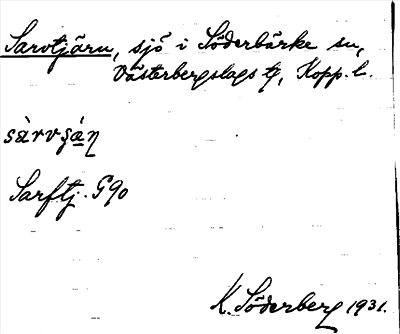 Sarvtjärn, sjö i Söderbärke sn,
Västerbergslags tg, Kopp. l.
sàrvʂá̱ṇ
Sarftj. G90
K. Söderberg 1931.